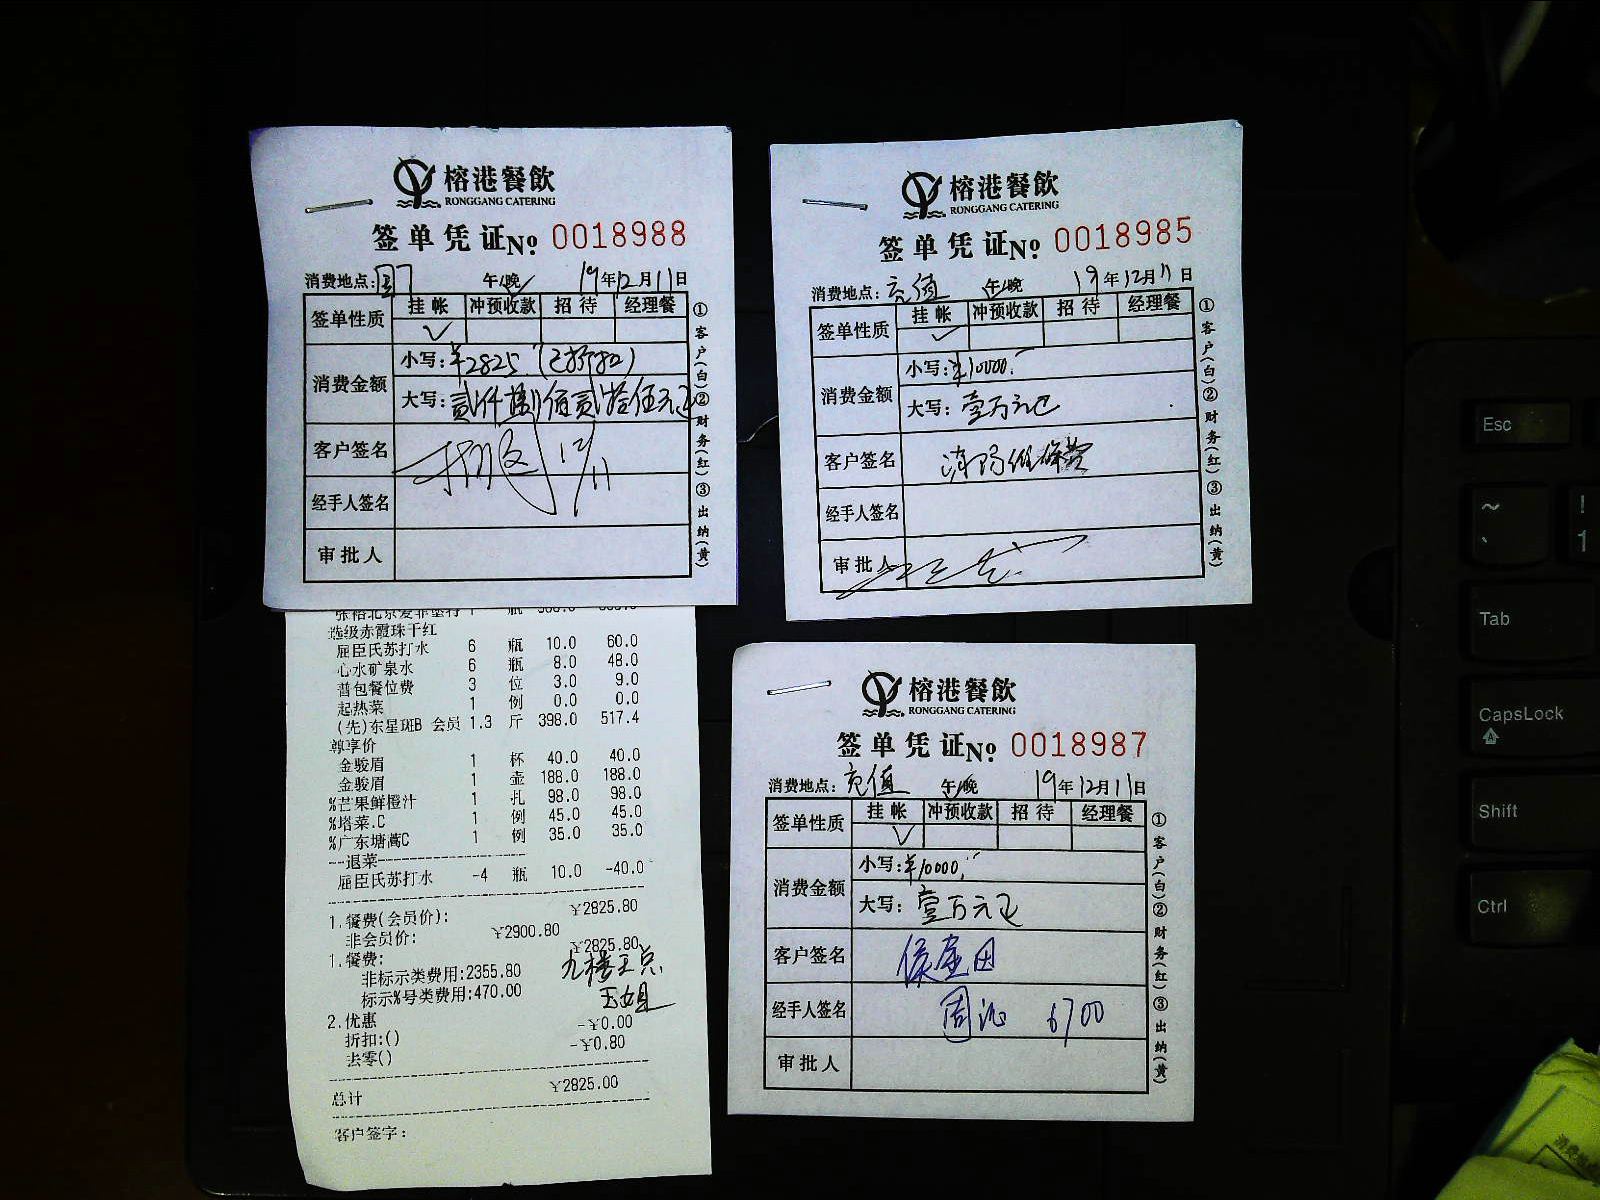 榕港餐飲
RONGGANG CATERING
签单凭证№ 0018988
消费地点: 午/晚 19年12月11日
签单性质 挂帐 冲预收款 招待 经理餐
✓
消费金额 小写:¥2825.(已折扣)
大写:贰仟捌佰贰拾伍元正
客户签名 12/11
经手人签名
审批人
①客户(白)②财务(红)③出纳(黄)
榕港餐飲
RONGGANG CATERING
签单凭证№ 0018985
消费地点:充值 午/晚 19年12月11日
签单性质 挂帐 冲预收款 招待 经理餐
✓
消费金额 小写:¥10000.
大写:壹万元正
客户签名
经手人签名
审批人
①客户(白)②财务(红)③出纳(黄)
选级赤霞珠干红
屈臣氏苏打水 6 瓶 10.0 60.0
心水矿泉水 6 瓶 8.0 48.0
普包餐位费 3 位 3.0 9.0
起热菜 1 例 0.0 0.0
(先)东星斑B 会员 1.3 斤 398.0 517.4
尊享价
金骏眉 1 杯 40.0 40.0
金骏眉 1 壶 188.0 188.0
%芒果鲜橙汁 1 扎 98.0 98.0
%塔菜.C 1 例 45.0 45.0
%广东塘蒿C 1 例 35.0 35.0
---退菜---
屈臣氏苏打水 -4 瓶 10.0 -40.0
1.餐费(会员价): ¥2825.80
非会员价: ¥2900.80
1.餐费: ¥2825.80
非标示类费用:2355.80
标示%号类费用:470.00
2.优惠 -¥0.00
折扣:() -¥0.80
去零()
总计 ¥2825.00
客户签字:
榕港餐飲
RONGGANG CATERING
签单凭证№ 0018987
消费地点:充值 午/晚 19年12月11日
签单性质 挂帐 冲预收款 招待 经理餐
✓
消费金额 小写:¥10000.
大写:壹万元正
客户签名
经手人签名 6700
审批人
①客户(白)②财务(红)③出纳(黄)
Esc
~ !
` 1
Tab
CapsLock
Shift
Ctrl